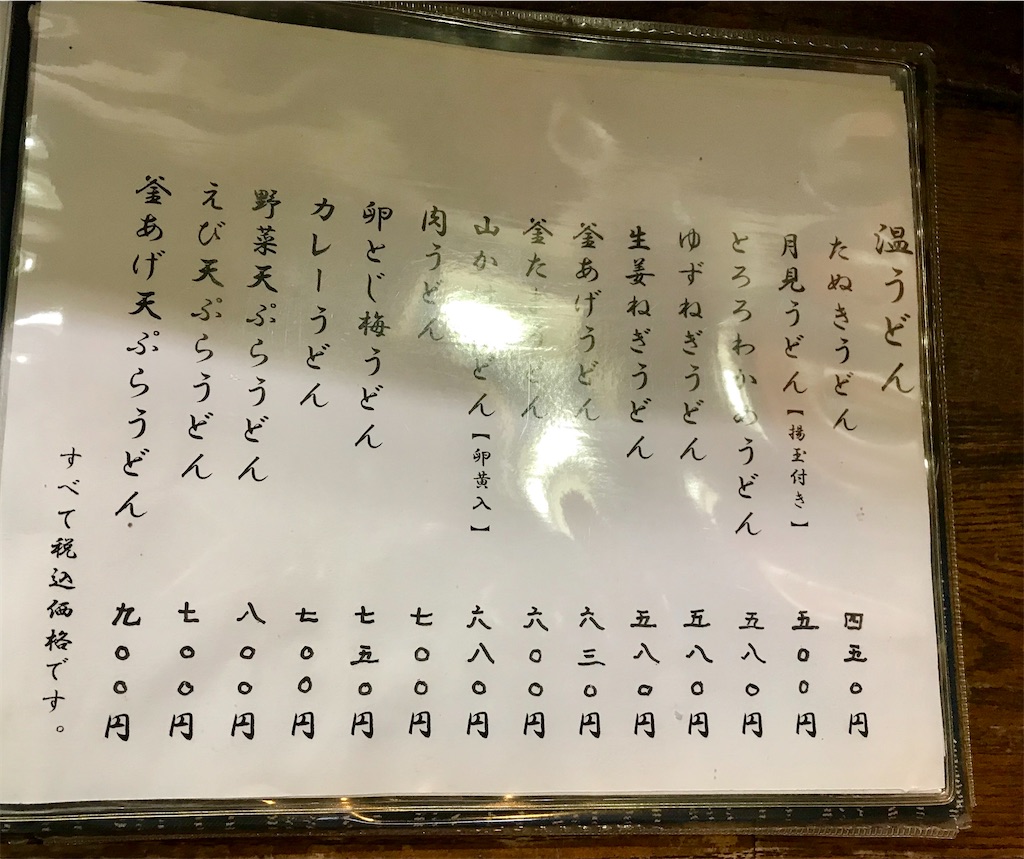 温うどん
たぬきうどん 四五〇円
月見うどん【揚玉付き】 五〇〇円
とろろわかめうどん 五八〇円
ゆずねぎうどん 五八〇円
生姜ねぎうどん 五八〇円
釜あげうどん 六三〇円
釜たまうどん 六〇〇円
山かけうどん【卵黄入】 六八〇円
肉うどん 七〇〇円
卵とじ梅うどん 七五〇円
カレーうどん 七〇〇円
野菜天ぷらうどん 八〇〇円
えび天ぷらうどん 七〇〇円
釜あげ天ぷらうどん 九〇〇円
すべて税込価格です。